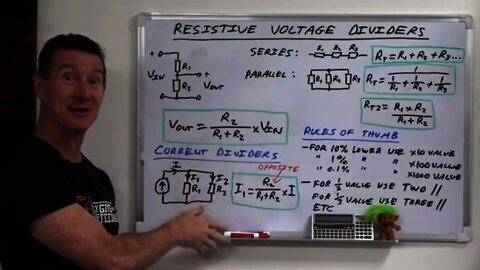 RESISTIVE VOLTAGE DIVIDERS
+
VIN
R1
R2
+
VOUT
-
-
SERIES:
R1 R2 R3
RT = R1 + R2 + R3...
PARALLEL:
R1 R2 R3
RT = 1 / (1/R1 + 1/R2 + 1/R3)
RT2 = R1 x R2 / R1 + R2
VOUT = R2 / R1 + R2 x VIN
RULES OF THUMB
- FOR 10% LOWER USE x10 VALUE
" 1% " " x100 VALUE
" 0.1% " " x1000 VALUE
- FOR 1/2 VALUE USE TWO //
FOR 1/3 VALUE USE THREE //
ETC
CURRENT DIVIDERS
I
I1
R1
I2
R2
OPPOSITE
I1 = R2 / R1 + R2 x I